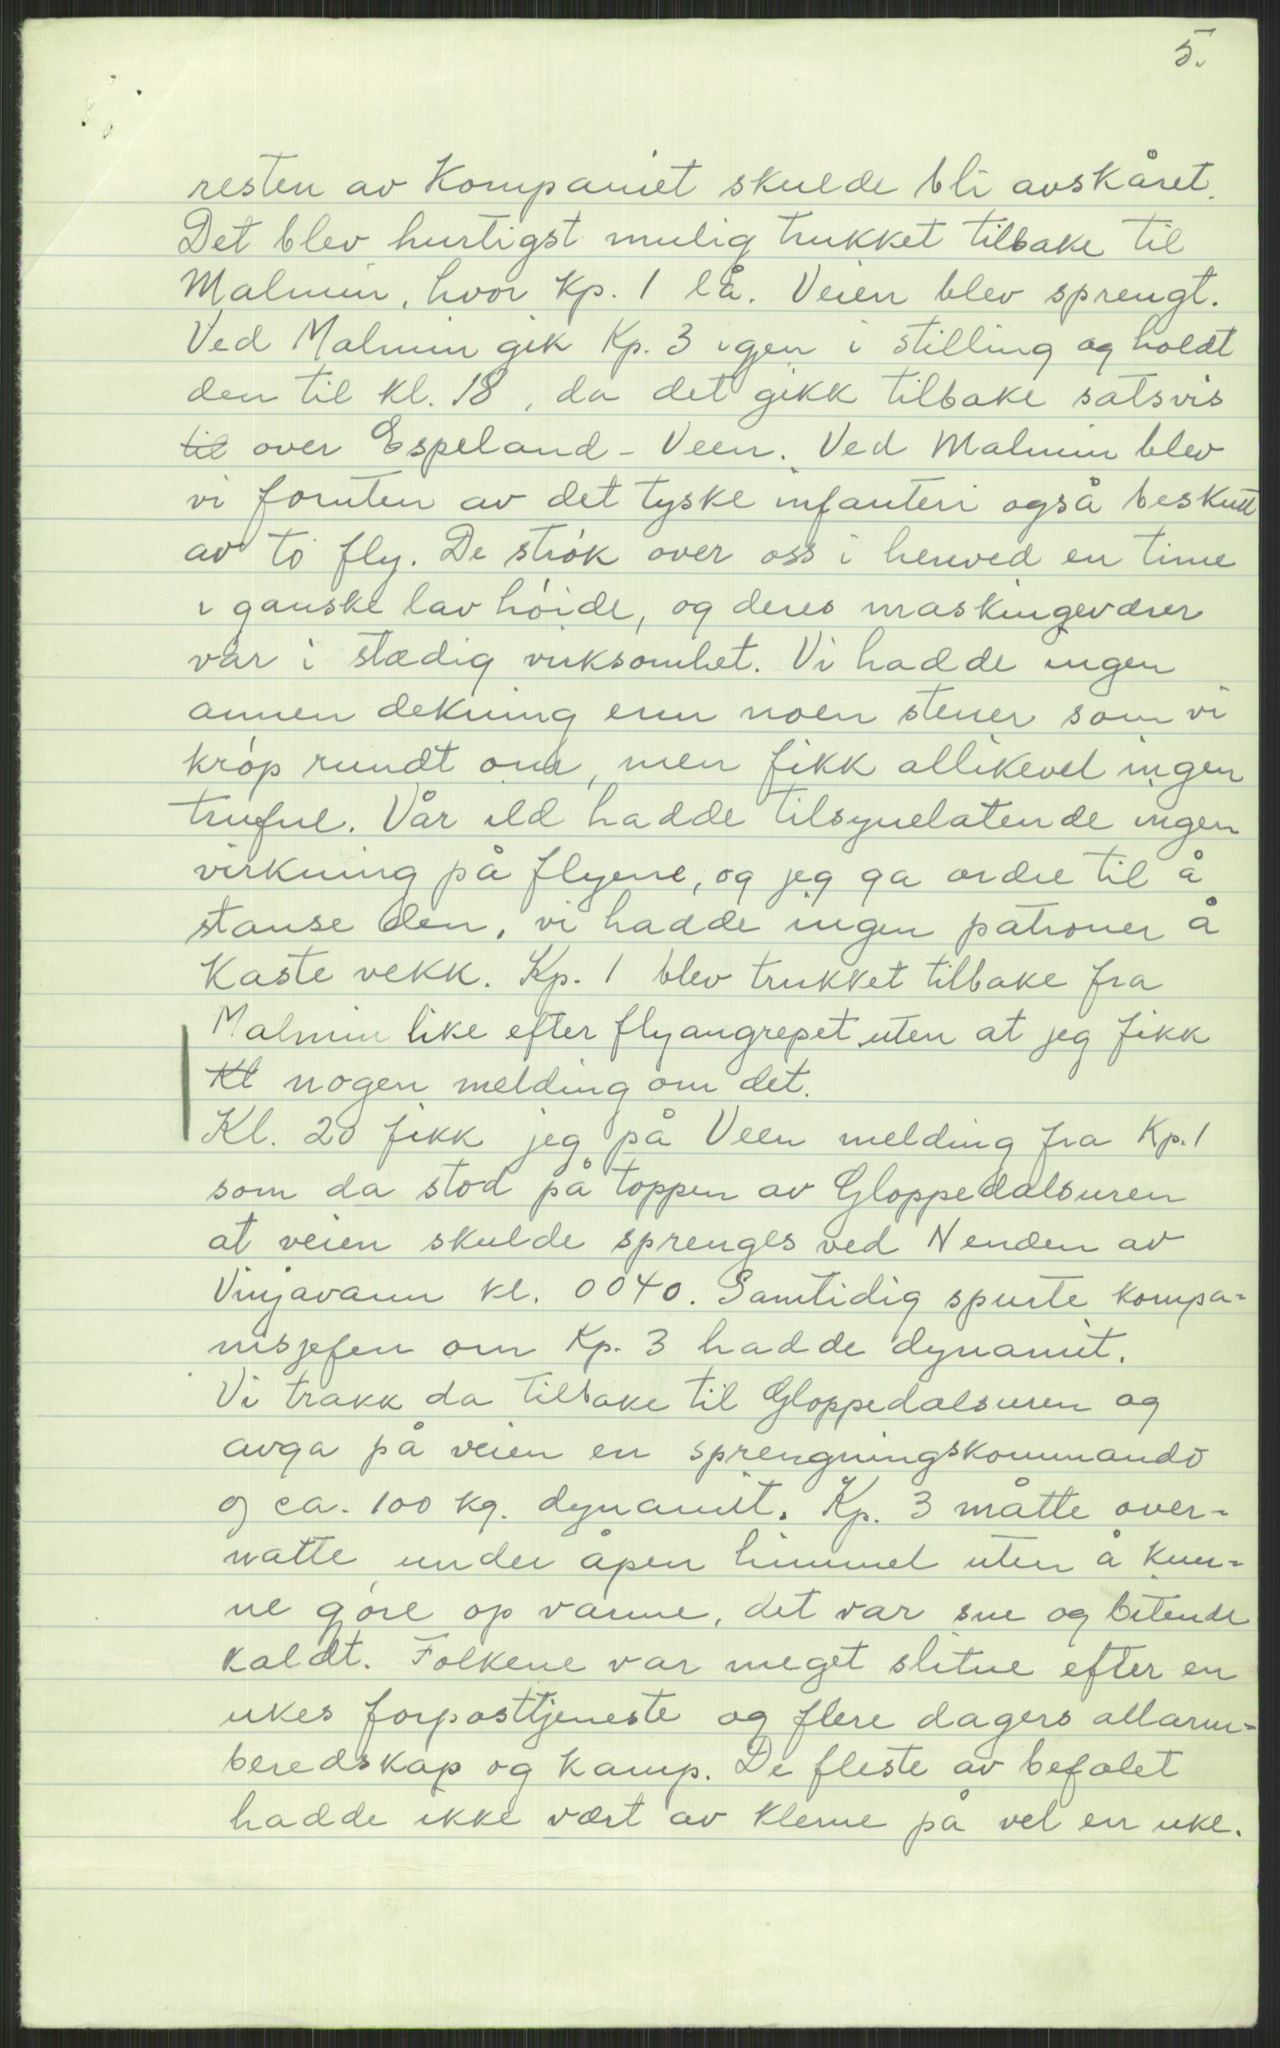 5.
resten av Kompaniet skulde bli avskåret.
Det blev hurtigst mulig trukket tilbake til
Malmin, hvor Kp. 1 lå. Veien blev sprengt.
Ved Malmin gik Kp. 3 igjen i stilling og holdt
den til kl. 18, da det gikk tilbake satsvis
til over Espeland - Veen. Ved Malmin blev
vi foruten av det tyske infanteri også beskutt
av to fly. De strök over oss i henved en time
i ganske lav höide, og deres maskingeværer
var i stædig virksomhet. Vi hadde ingen
annen dekning enn noen stener som vi
kröp rundt om, men fikk allikevel ingen
treffere. Vår ild hadde tilsynelatende ingen
virkning på flyene, og jeg ga ordre til å
stanse den, vi hadde ingen patroner å
kaste vekk. Kp. 1 blev trukket tilbake fra
Malmin like efter flyangrepet uten at jeg fikk
Kl nogen melding om det.
Kl. 20 fikk jeg på Veen melding fra Kp. 1
som da stod på toppen av Gloppedalsuren
at veien skulde sprenges ved N enden av
Vinjavann kl. 0040. Samtidig spurte kompa=
nisjefen om Kp. 3 hadde dynamit.
Vi trakk da tilbake til Gloppedalsuren og
avga på veien en sprengningskommando
og ca. 100 kg. dynamit. Kp. 3 måtte over=
natte under åpen himmel uten å kun=
ne göre op varme, det var sne og bitende
kaldt. Folkene var meget slitne efter en
ukes forposttjeneste og flere dagers allarm=
beredskap og kamp. De fleste av befalet
hadde ikke vært av klerne på vel en uke.